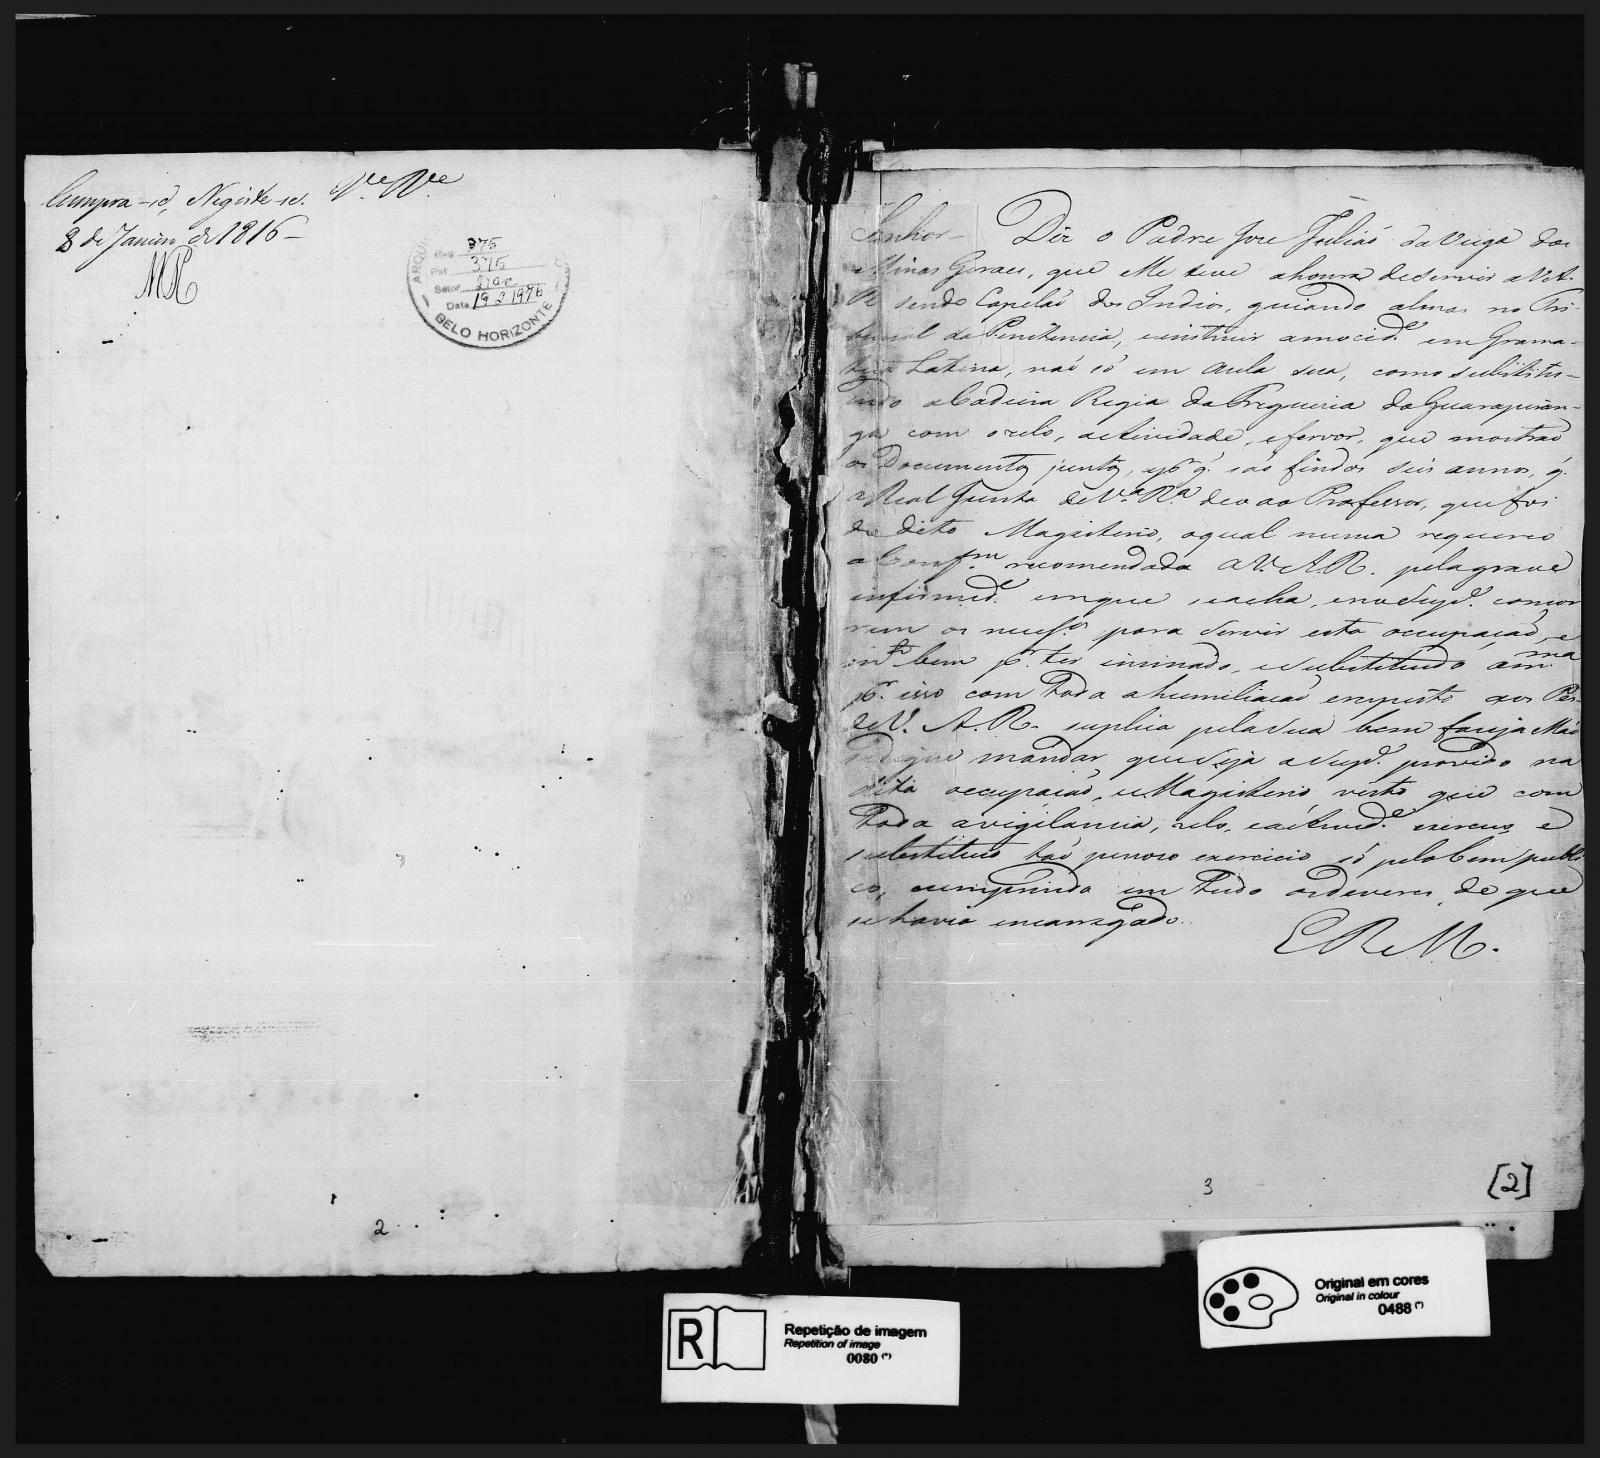 Cumpra-se, Registe-se.
8 de Janeiro de 1816—
ARQU
Reg 375
Pat 375
Setor
Data 19 2 1976
BELO HORIZONTE
2
Senhor— Diz o Padre Joze Julião da Veiga das
Minas Geraes, que elle teve a honra de servir a V. A.
R sendo Capelão dos Indios, guiando almas no Tri-
bunal da Penitencia, e instruir a mocid.e em Grama-
tica Latina, não só em Aula sua, como substitu-
indo a Cadeira Regia da Freguezia da Guarapiran-
ga com o zelo, actividade, e fervor, que mostrão
os Documentos juntos, e p.r q. são findos seis annos, q.
a Real Junta de V.a R.a deo ao Professor, que foi
do dito Magisterio, o qual nunca requereo
a Conf.m recomendada a V. A. R. pela grave
infirmid.e em que se acha, e no Supp.e concor
rem os necess.os para servir esta occupação, e
m.to bem p.r ter insinado, e substituido a m.ma
p.r isso com toda a humiliação exposto aos Pés
de V. A. R. suplica pela sua bem fazeja Mão
se digne mandar que seja o Supp.e provido na
dita occupação, e Magisterio visto que com
toda a vigilancia, zelo, e activid.e exerceo, e
substituio tão penoso exercicio só pelo bem publi
co, cumprindo em tudo os deveres, de que
se havia encarregado.
E R M.
3
[2]
R
Repetição de imagem
Repetition of image
0080 (*)
Original em cores
Original in colour
0488 (*)